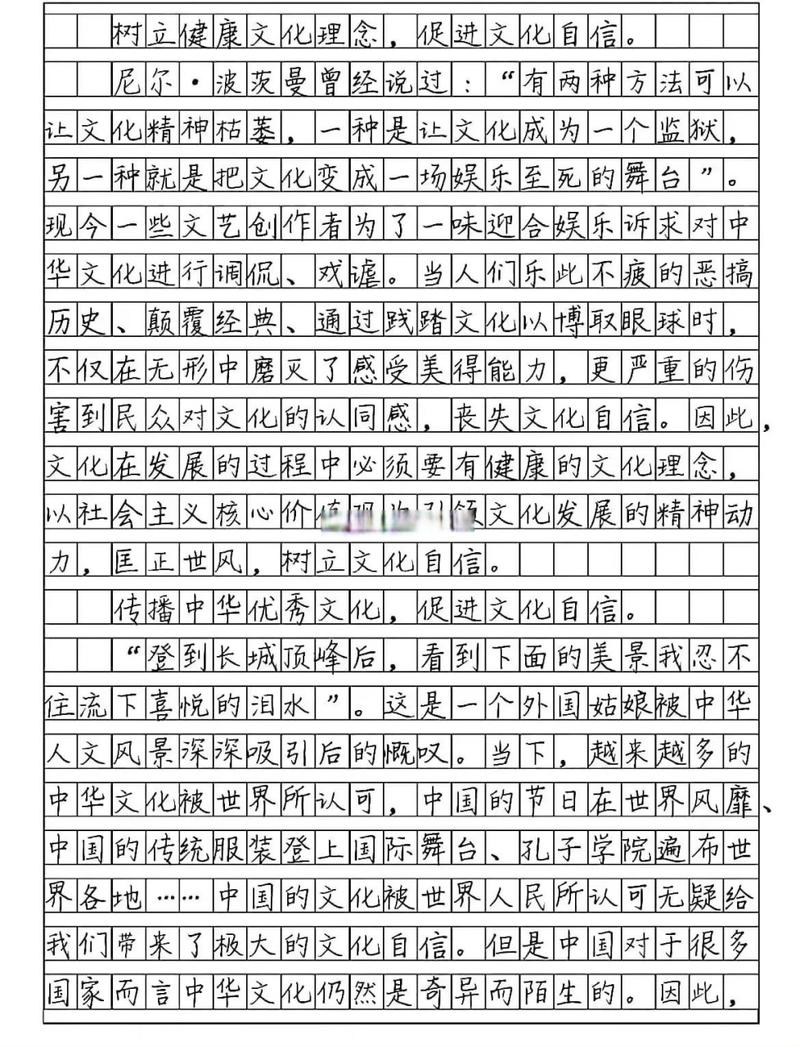 树立健康文化理念，促进文化自信。
尼尔·波茨曼曾经说过：“有两种方法可以
让文化精神枯萎，一种是让文化成为一个监狱，
另一种就是把文化变成一场娱乐至死的舞台”。
现今一些文艺创作者为了一味迎合娱乐诉求对中
华文化进行调侃、戏谑。当人们乐此不疲的恶搞
历史、颠覆经典、通过践踏文化以博取眼球时，
不仅在无形中磨灭了感受美得能力，更严重的伤
害到民众对文化的认同感，丧失文化自信。因此，
文化在发展的过程中必须要有健康的文化理念，
以社会主义核心价值观为引领文化发展的精神动
力，匡正世风，树立文化自信。
传播中华优秀文化，促进文化自信。
“登到长城顶峰后，看到下面的美景我忍不
住流下喜悦的泪水”。这是一个外国姑娘被中华
人文风景深深吸引后的慨叹。当下，越来越多的
中华文化被世界所认可，中国的节日在世界风靡、
中国的传统服装登上国际舞台、孔子学院遍布世
界各地……中国的文化被世界人民所认可无疑给
我们带来了极大的文化自信。但是中国对于很多
国家而言中华文化仍然是奇异而陌生的。因此，